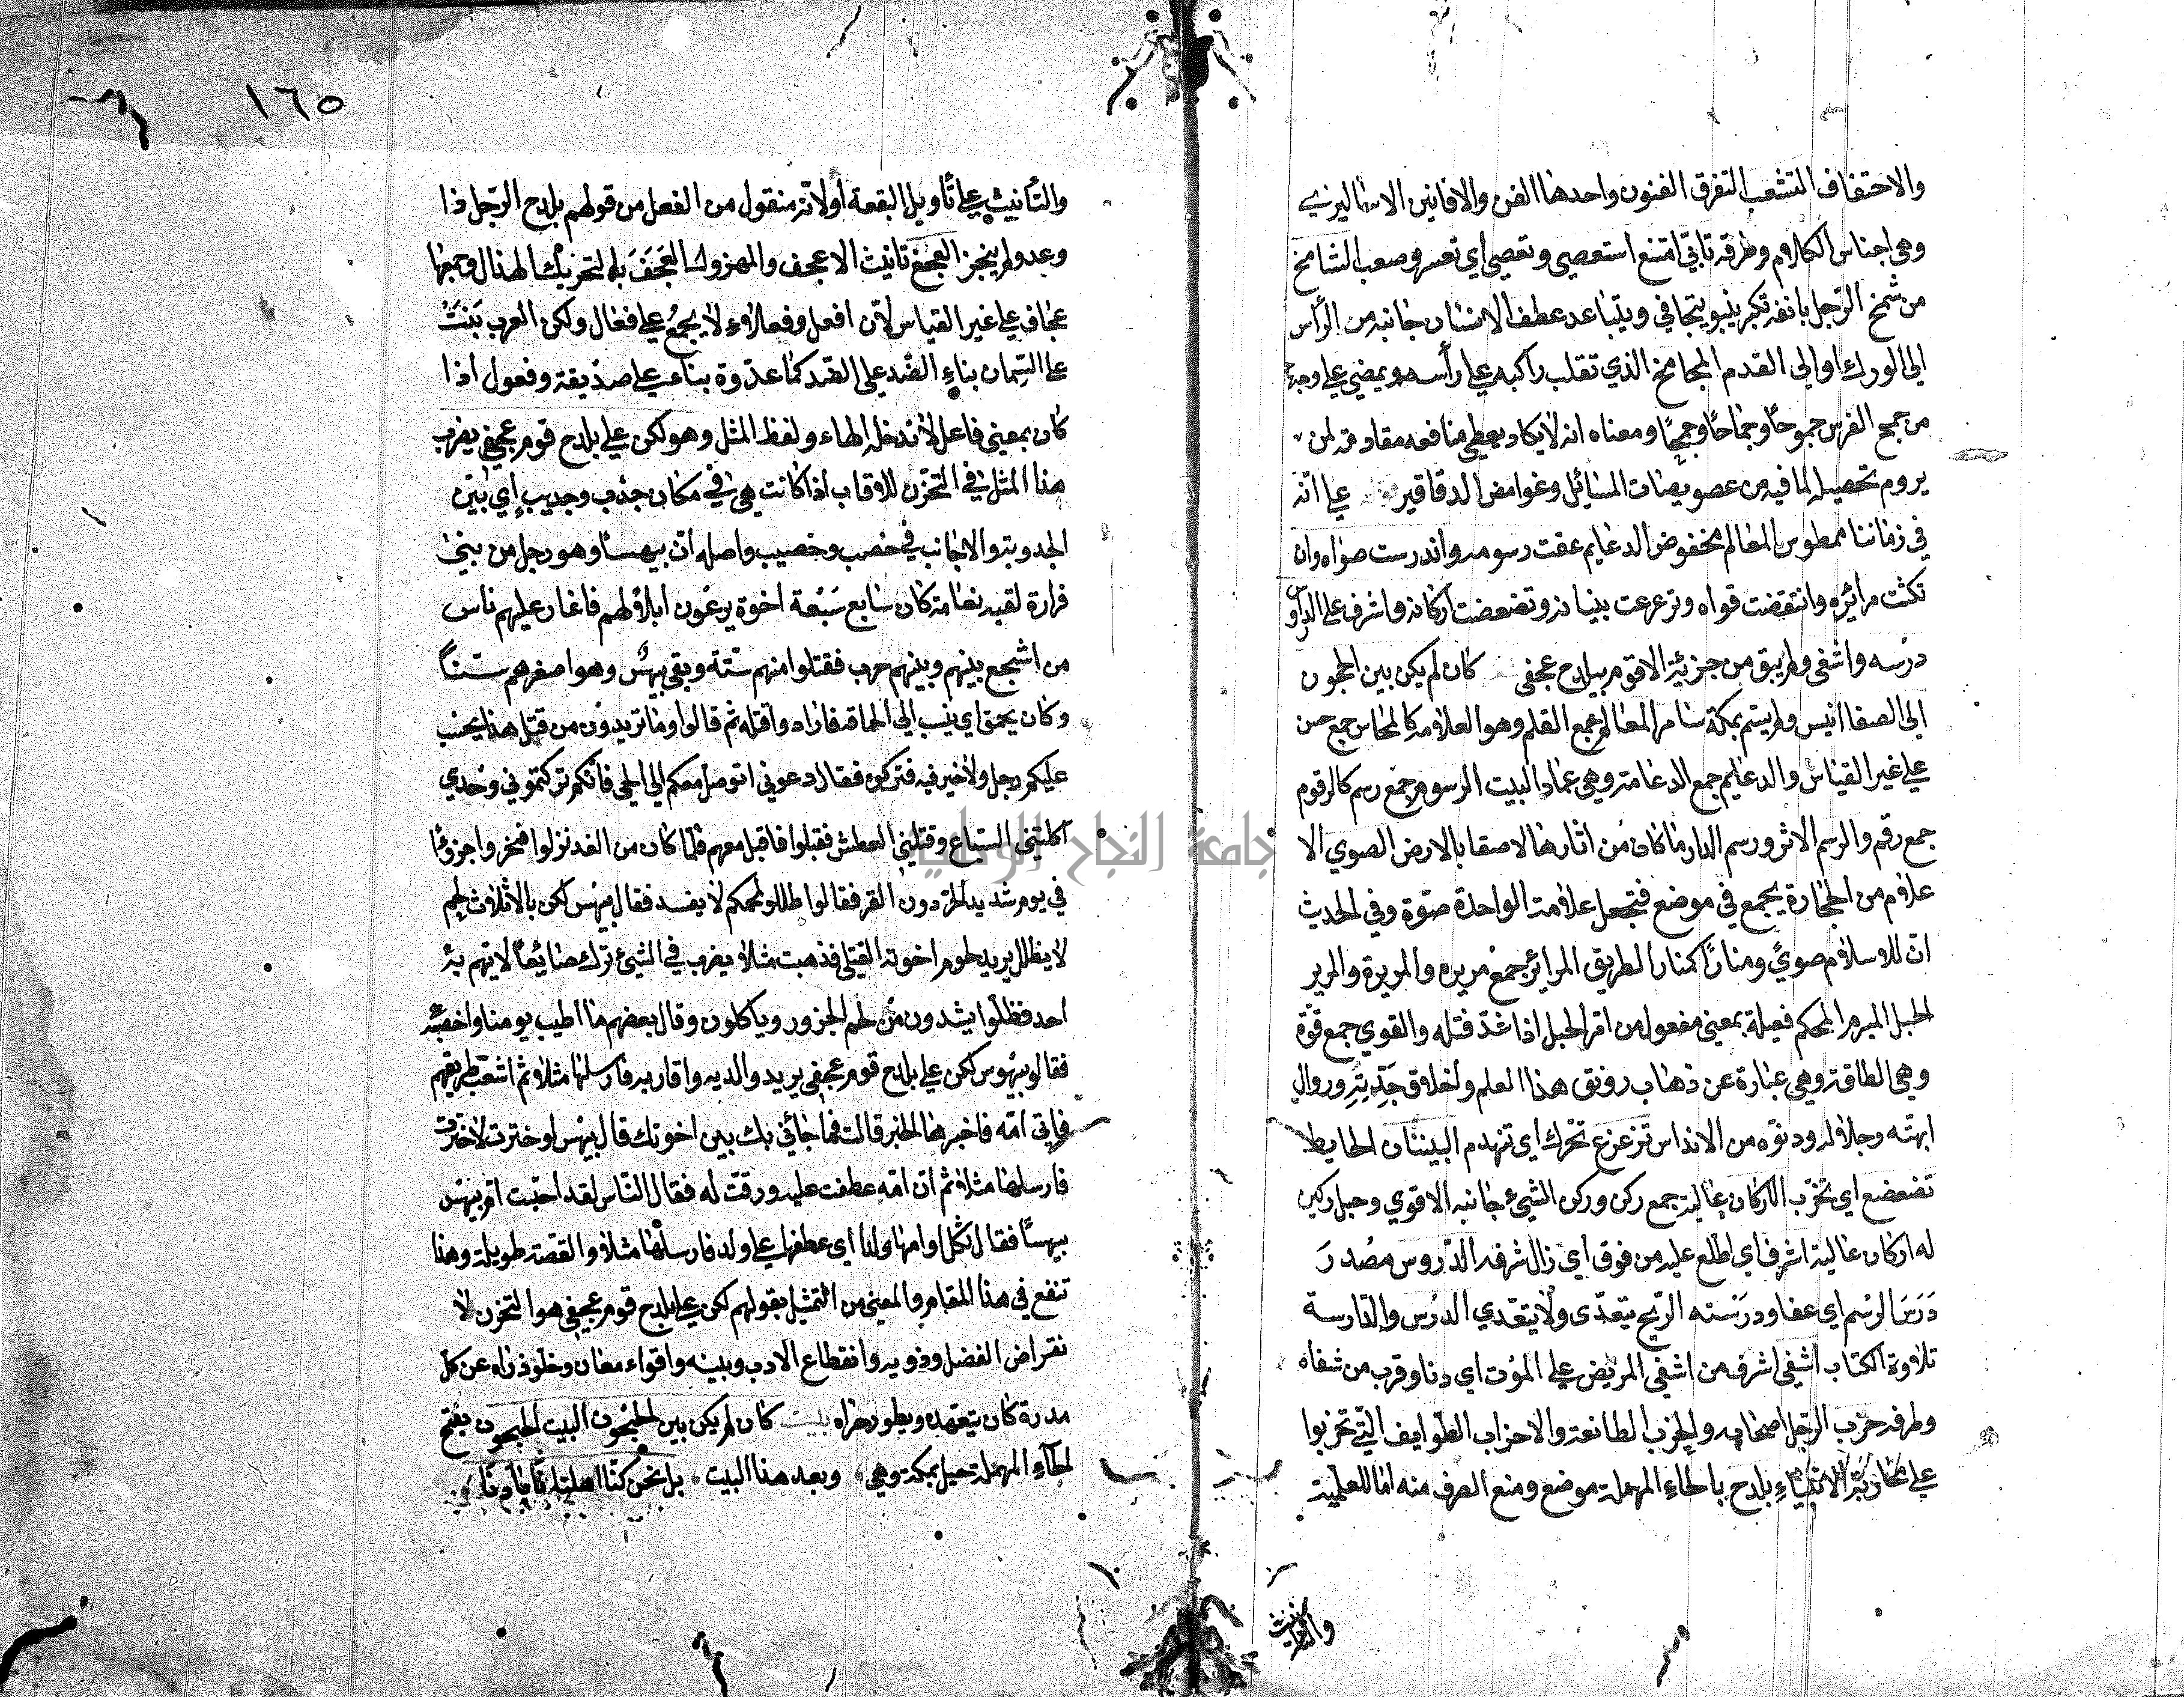 والاحتفاف التشعب التفرق الفنون واحدها الفن والافانين الاساليب
وهي اجناس الكلام وطرقه تابى امتنع استعصى وتعصى اي تعسر وصعب الشامخ
من شمخ الرّجل بانفه تكبر ينبو يتجافى ويتباعد عطف الانسان جانبه من الرأس
الى الورك او الى القدم الجامح الذي تقلب راكبه على رأسه ويمضي على وجهه
من جمح الفرس جموحًا وجماحًا وجمحًا ومعناه انه لا يكاد يعطي منافعه مقادته لمن
يروم تحصيله لما فيه من عصويصات المسائل وغوامض الدقاقير على انّه
في زماننا مطموس المعالم مخفوض الدعايم عفت رسومه واندرست صواه وان
تكثت مرائره وانتقضت قواه وتزعزعت بنيانه وتضعضعت اركانه واشرف على
درسه واشفى ولم يبق من حزبه الا قوم ببلدح عجفى كان لم يكن بين الحجون
الى الصفا انيس ولم يسم بمكة سامر المعالم جمع القلم وهو العلامة كالمحاسن جمع حسن
على غير القياس والدعايم جمع الدعامة وهي عماد البيت الرسوم جمع رسم كالرقوم
جمع رقم والرسم الاثر ورسم الدار ما كان من اثارها لاصقا بالارض الصوي الا
علام من الحجارة يجمع في موضع فتجعل علامة الواحدة صوّة وفي الحديث
انّ للاسلام صوًى ومنارًا كمنار الطريق المرائر جمع مريره والمريرة والمرير
الحبل المبرم المحكم فعيلة بمعنى مفعول من امر الحبل اذا شدّ فتله والقوي جمع قوّة
وهي الطاقة وهي عبارة عن ذهاب رونق هذا العلم واخلاق جدّته وزوال
ابهته وجلاله ودنوّه من الاندراس تزعزع تحرك اي تهدم البنيان الحايط
تضعضع اي تخرّب الاركان عالية جمع ركن وركن الشيء جانبه الاقوي وجبل ركين
له اركان عالية اشرف اي اطلع عليه من فوق اي زال شرفه الدّروس مصدر
دَرَسَ الرسم اي عفا ودرسته الرّيح يتعدّى ولا يتعدّي الدّرس والدّارسة
تلاوة الكتاب اشفى اشرف من اشفى المريض على الموت اي دنا وقرب من شفاه
وطرفه حزب الرّجل اصحابه والحزب الطائفة والاحزاب الطّوايف الّتي تحزبوا
على محاربة الانبياء بلدح بالحاء المهملة موضع ومنع الصرف منه امّا للعلميّة
والتأنيث
١٦٥
والتأنيث على تأويل البقعة او لانّه منقول من الفعل من قولهم بلدح الرّجل اذا
وعد ولم ينجز العجفى تانيث الاعجف والمهزول العَجَفَ بالتحريك الهذال وجمعها
عجاف على غير القياس لأن افعل وفعلاء لا يجمعُ على فعال ولكن العرب بَنَتْ
على السِّمان بناء الضّد على الضّد كما عدوة بناء على صديقة وفعول اذا
كان بمعنى فاعل لا تدخله الهاء ولفظ المثل وهو لكن على بلدح قوم عجفى يضرب
هذا المثل في التحزّن للاقارب اذا كانت هي في مكان جدب وجديب اي بيّن
الجدوبة والاجانب في خصب وخصيب واصله انّ بيهسًا وهو رجل من بني
فزارة لقبه نعامة كان سابع سَبْعة اخوة يرعون ابلا لهم فاغار عليهم ناس
من اشجع بينهم وبينهم حرب فقتلوا منهم ستّة وبقى بيهسٌ وهو اصغرهم سنًّا
وكان يحمق اي ينسب الى الحماقة فارادوا قتله ثم قالوا وما تريدون من قتل هذا يحسب
عليكم رجل ولا خير فيه فتركوه فقال دعوني اتوصل معكم الى الحي فانّكم تركتموني وحدي
اكلتني السّباع وقتلني العطش فقبلوا فاقبل معهم فلما كان من الغد نزلوا فنحروا جزورًا
في يوم شديد الحرّ دون القر فقالوا ظللوا لحمكم لا يفسد فقال بيهس لكن بالاثلاث لحم
لا يظلل يريد لحوم اخوته القتلى فذهبت مثلا يضرب في الشيء ترك ضايعًا لا يهم به
احد فظلّوا يشدون من لحم الجزور ويأكلون وقال بعضهم ما اطيب يومنا واخصبه
فقال بيهس لكن على بلدح قوم عجفى يريد والديه واقاربه فارسلها مثلا ثم انشعب طريقهم
فاتى امّه فاخبرها الخبر قالت فما جائني بك من بين اخوتك قال بيهس لو خيّرت لاخترت
فارسلها مثلا ثم انّ امّه عطفت عليه ورقّت له فقال النّاس لقد احبّت ام بيهس
بيهسًا فقال ثكل ارامها ولدا اي عطفها على ولد فارسلها مثلا والقصّة طويلة وهذا
تنفع في هذا المقام والمعنى من التمثيل بقولهم لكن على بلدح قوم عجفى هو التحزن لا
نقراض الفضل وذويه وانقطاع الادب وبنيه واقواء مغانيه وخلوّ ذراه عن كلّ
مدرة كان يتعهده ويطور حراه كان لم يكن بين الحجون البيت الحجون بفتح
الحآء المهملة جبل بمكة وهي، وبعد هذا البيت، بلى نحن كنّا اهلها